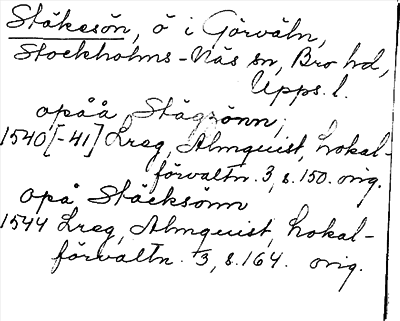 Stäkesön, ö i Görväln,
Stockholms-Näs sn, Bro hd,
Upps. l.
opåå Stägsönn,
1540[-41] Lreg, Almquist, Lokal-
förvaltn. 3, s. 150. orig.
opå Stäcksönn
1544 Lreg, Almquist, Lokal-
förvaltn. 3, s. 164. orig.